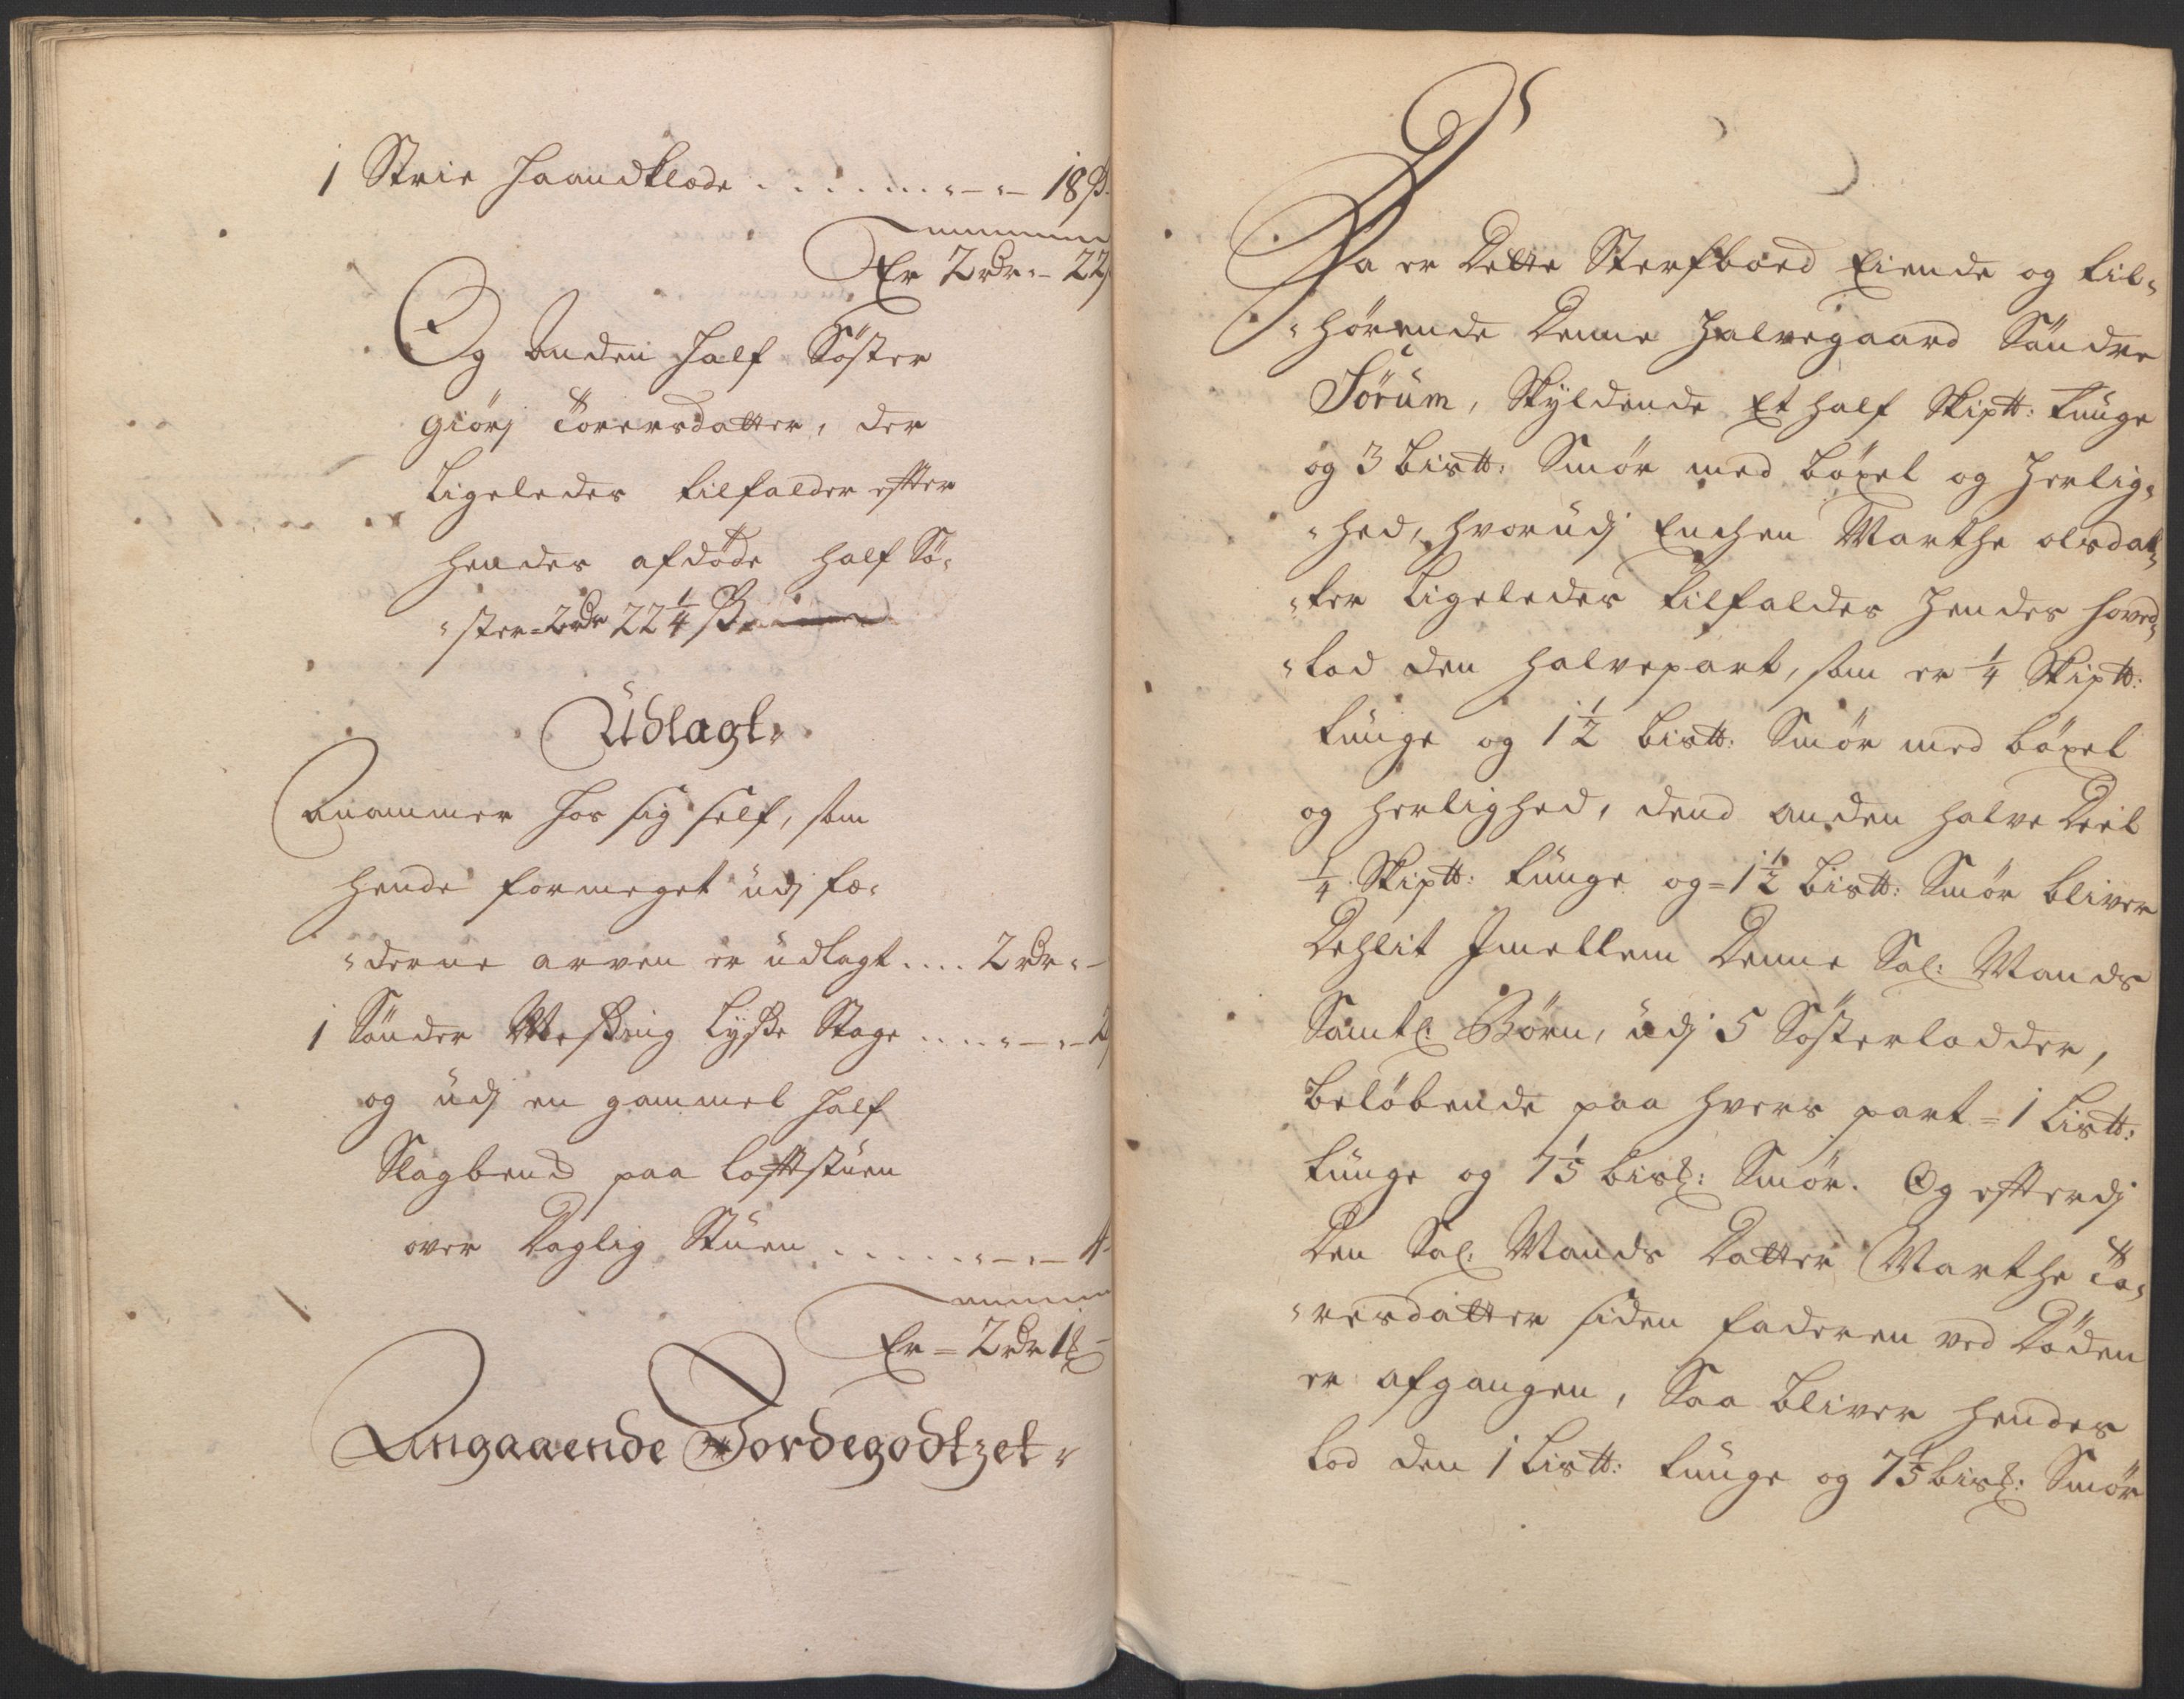 1 Strie Haandklæde . . . . . . . „ – „ – 18 ß.
Er 2 rdr „ – 22
Og Anden Half Söster
Giörj Torersdatter, der
Ligeledes tilfalder efter
hendes afdöde half Sö„
„ster = 2 rdr 22 1/4 ß
Üdlagt.
Annammer hos sig self, som
hende formeget üdj fæ„
„derne arven er üdlagt .... 2 rdr „ –
1 Sönder Messing Lysse Stage .... „ – „ – 2
og üdj en gammel half
Slagbend paa loftstüen
over Daglig Stüen . . . . . „ – „ –
Er = 2 rdr 1
Angaaende Jordegodtzet „
Da er Dette Sterfboed Eiende og til„
„hörende Denne Halvegaard Söndre
Sörüm, Skyldende Et half Skip℔: Tunge
og 3 bis℔: Smör med böxel og Herlig„
„hed, hvorüdj Enchen Marthe olsdat„
„ter Ligeledes tilfalder Hendes hoved„
„lod den halvepart, som er 1/4 Skip℔:
Tunge og 1 1/2 bis℔: Smör med böxel
og herlighed, dend anden halve Deel
1/4 Skip℔: Tunge og = 1 1/2 bis℔: Smör bliver
Dehlit Imellem Denne Sal: Mands
Samtl: Börn, üdj 5 Sösterlodder,
Belöbende paa hvers part = 1 Lis℔:
Tunge og 7 1/5 bis: Smör. Og efterdj
Den Sal. Mands Datter Marthe To„
„resdatter siden faderen ved Döden
er afgangen, Saa bliver hendes
lod den 1 Lis℔: Tunge og 7 1/5 bis: Smör